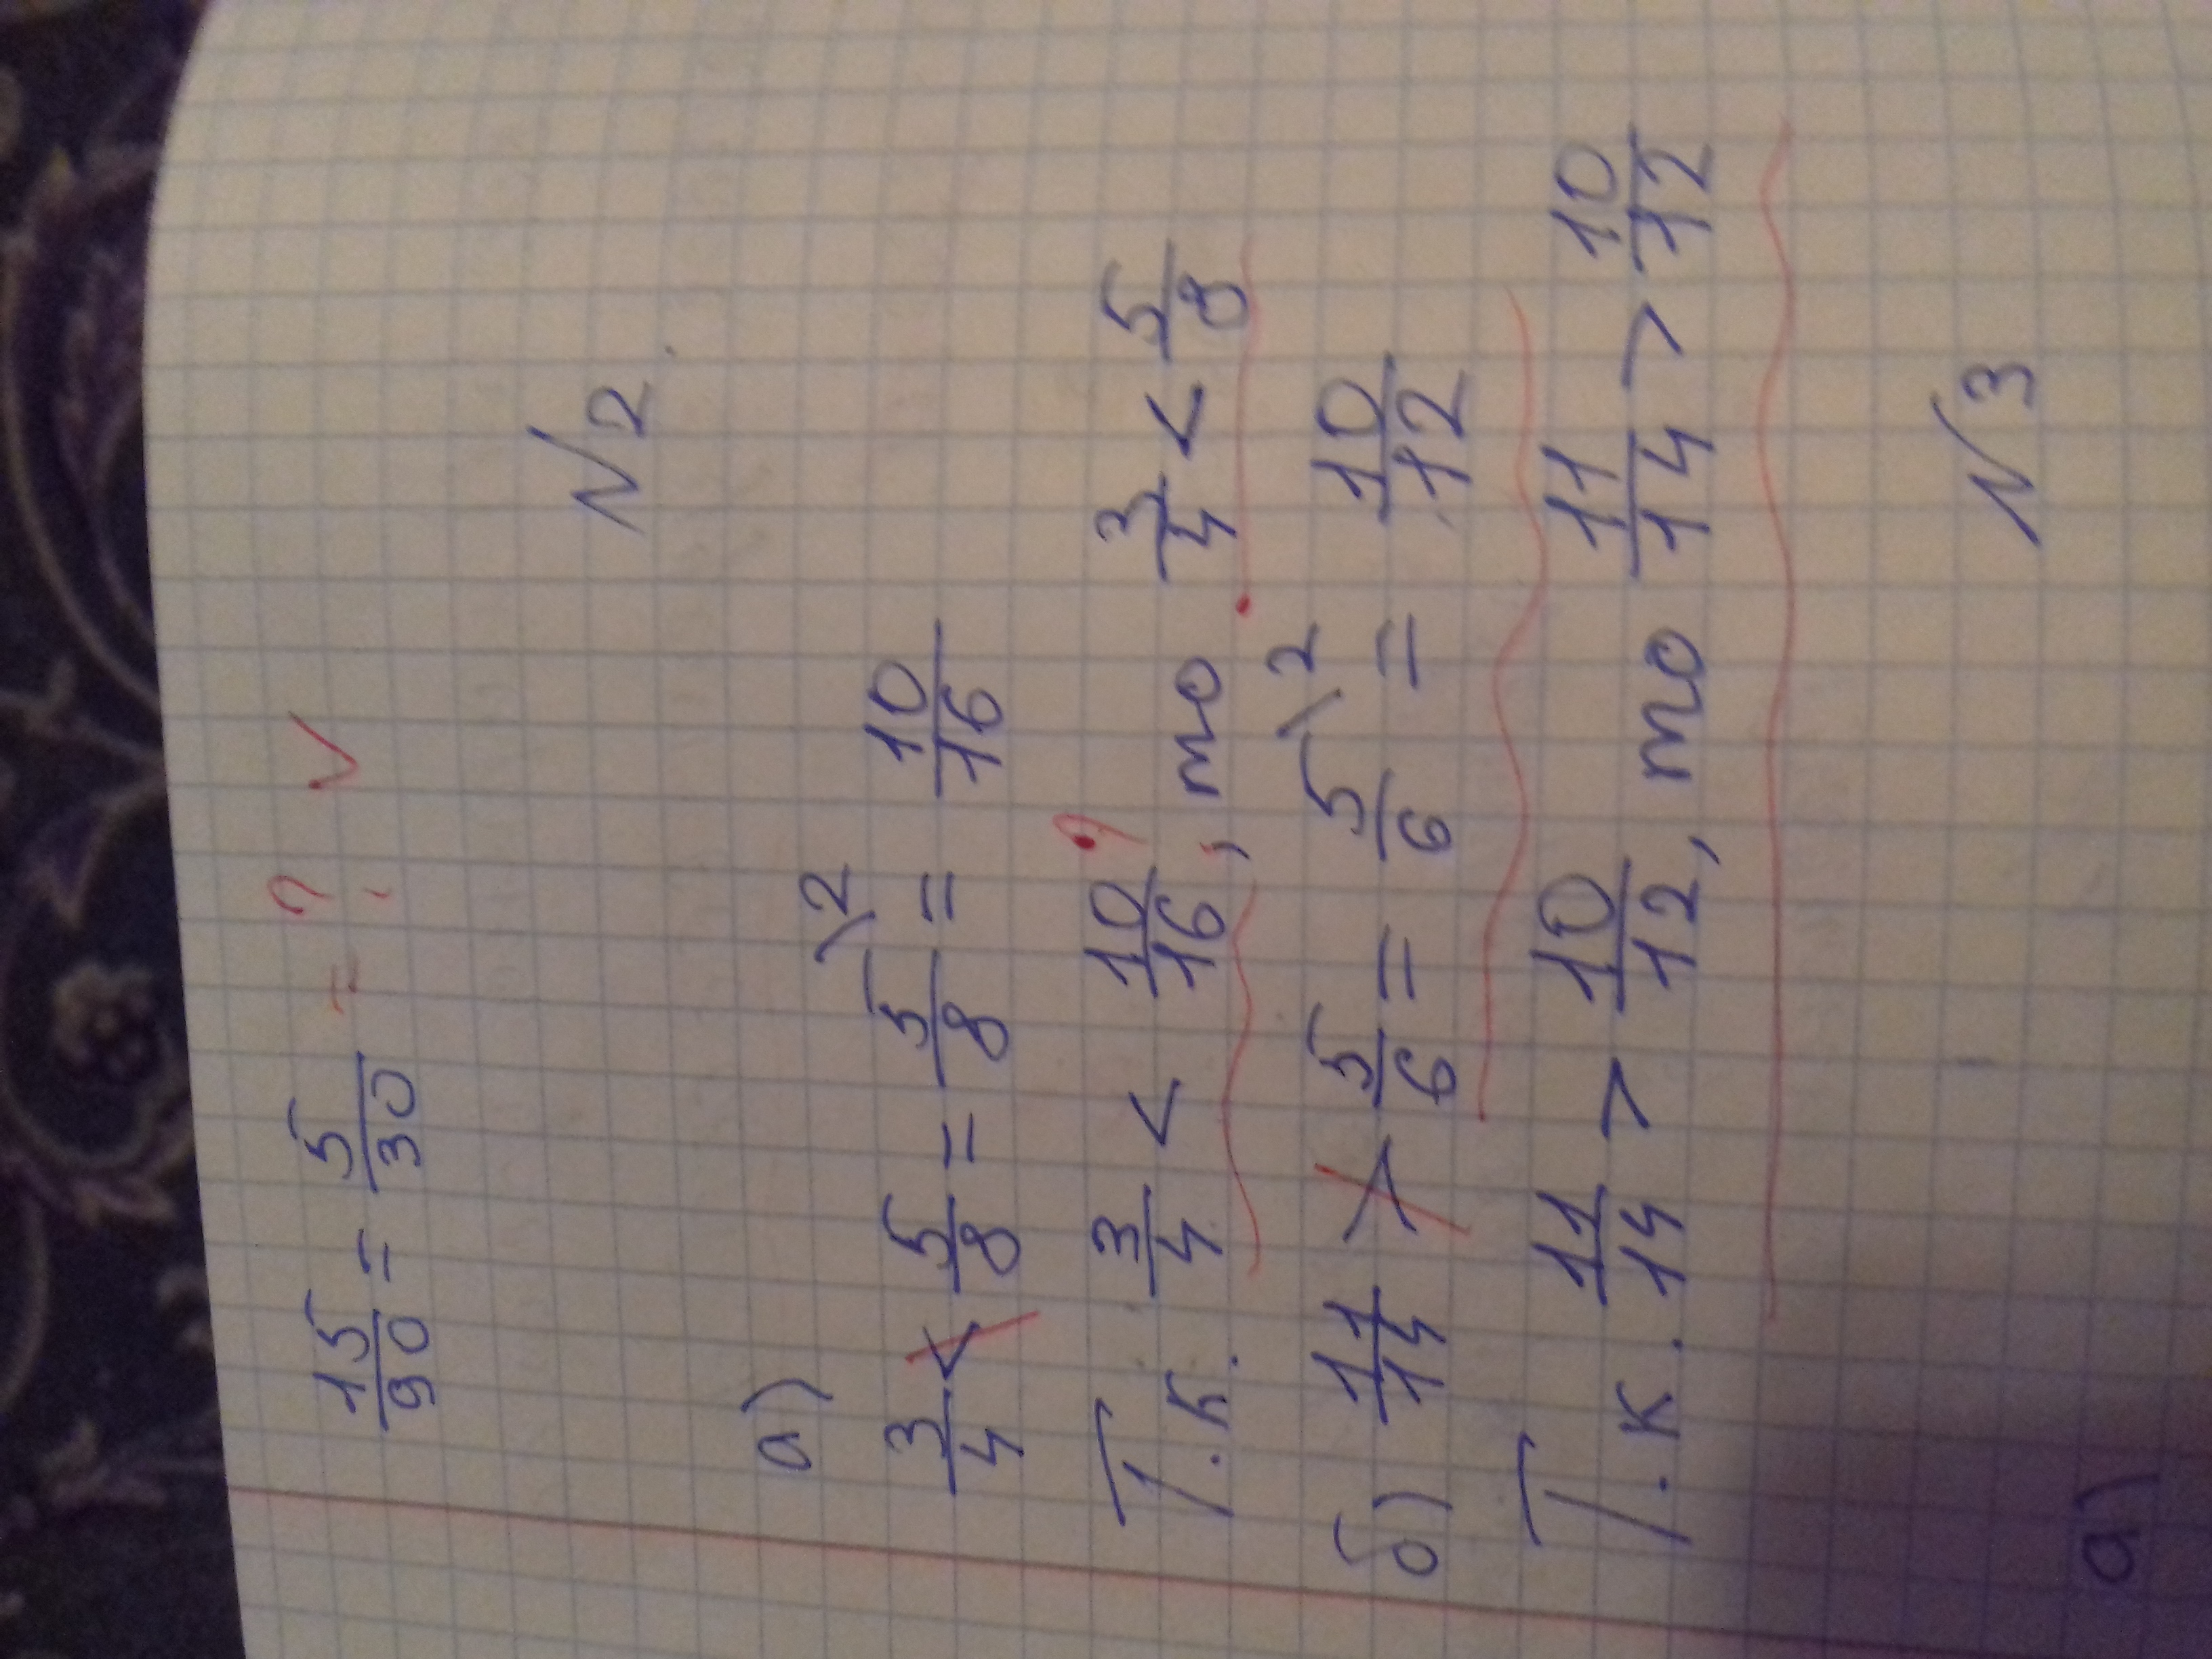 15/90 = 5/30 = ? √
N2
а)
3/4 < 5/8 = 5/8 \2 = 10/16
Т.к. 3/4 < 10/16, то 3/4 < 5/8
б) 11/14 > 5/6 = 5/6 \2 = 10/12
Т.к. 11/14 > 10/12, то 11/14 > 10/12
N3
а)